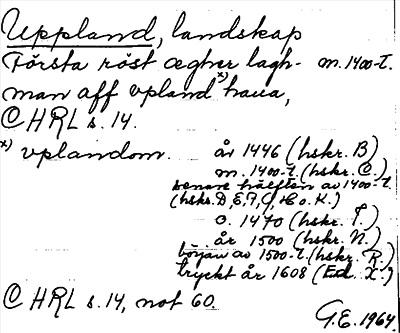 Uppland, landskap
Första röst ægher lagh- m. 1400-t.
man aff vpland x) haua,
CHRL s. 14.
x) vplandom. år 1446 (hskr. B)
m. 1400-t. (hskr. C.)
senare hälften av 1400-t.
(hskr. D, E, F, G, H o. K.)
o. 1470 (hskr. I.)
år 1500 (hskr. N.)
början av 1500-t. (hskr. R.)
tryckt år 1608 (Ed. X.)
CHRL s. 14, not 60.
G.E. 1964.